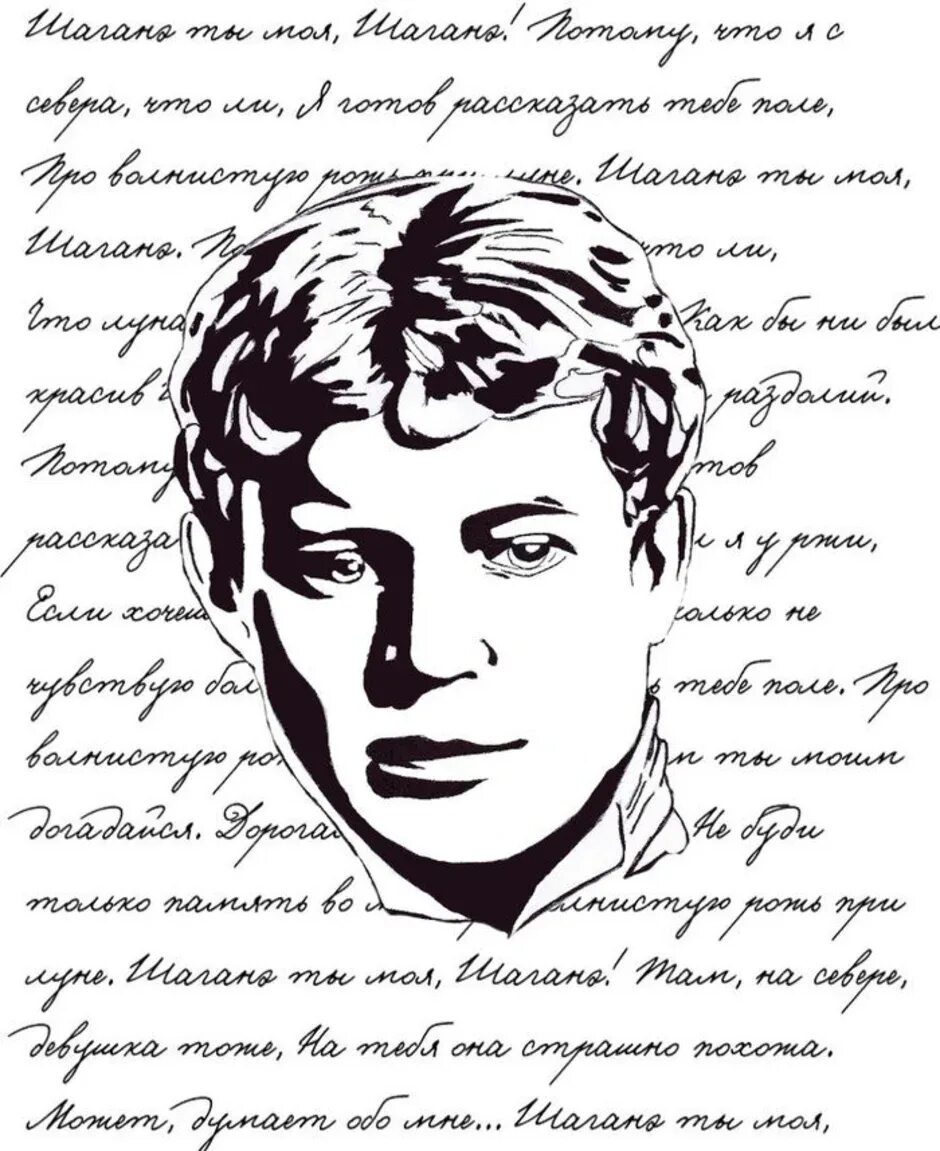 Шаганэ ты моя, Шаганэ! Потому, что я с
севера, что ли, Я готов рассказать тебе поле,
Про волнистую рожь при луне. Шаганэ ты моя,
Шаганэ. что ли,
Что луна Как бы ни был
красив раздолий.
Потому
рассказа я у ржи,
Если не
чувствую тебе поле. Про
волнистую ты моим
догадайся. Не буди
только память во рожь при
луне. Шаганэ ты моя, Шаганэ! Там, на севере,
девушка тоже, На тебя она страшно похожа.
Может, думает обо мне... Шаганэ ты моя,